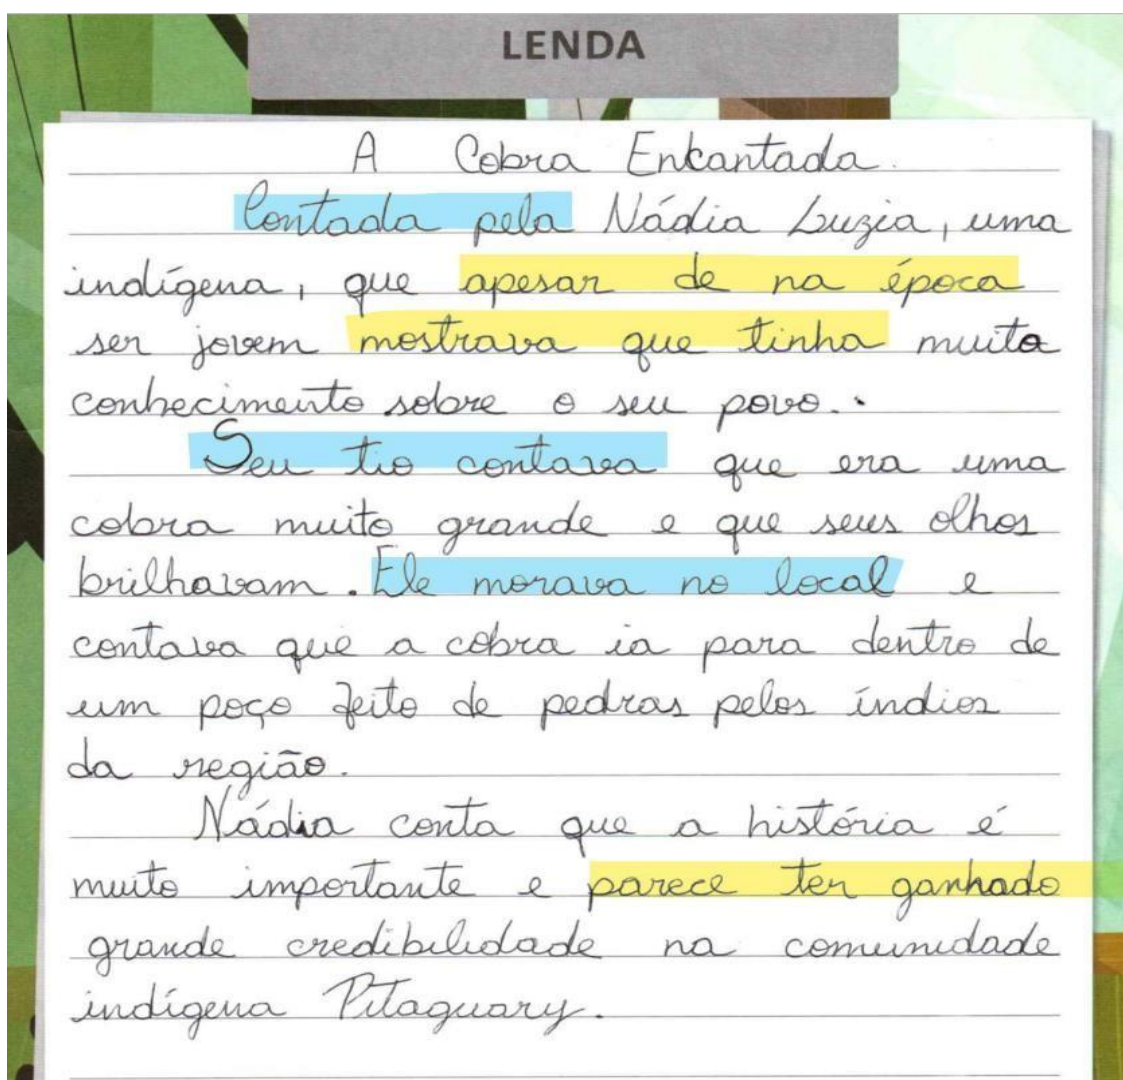 LENDA
A Cobra Enkantada.
Contada pela Nádia Luzia, uma
indígena, que apesar de na época
ser jovem mostrava que tinha muito
conhecimento sobre o seu povo.
Seu tio contava que era uma
cobra muito grande e que seus olhos
brilhavam. Ele morava no local e
contava que a cobra ia para dentro de
um poço feito de pedras pelos índios
da região.
Nádia conta que a história é
muito importante e parece ter ganhado
grande credibilidade na comunidade
indígena Pitaguary.